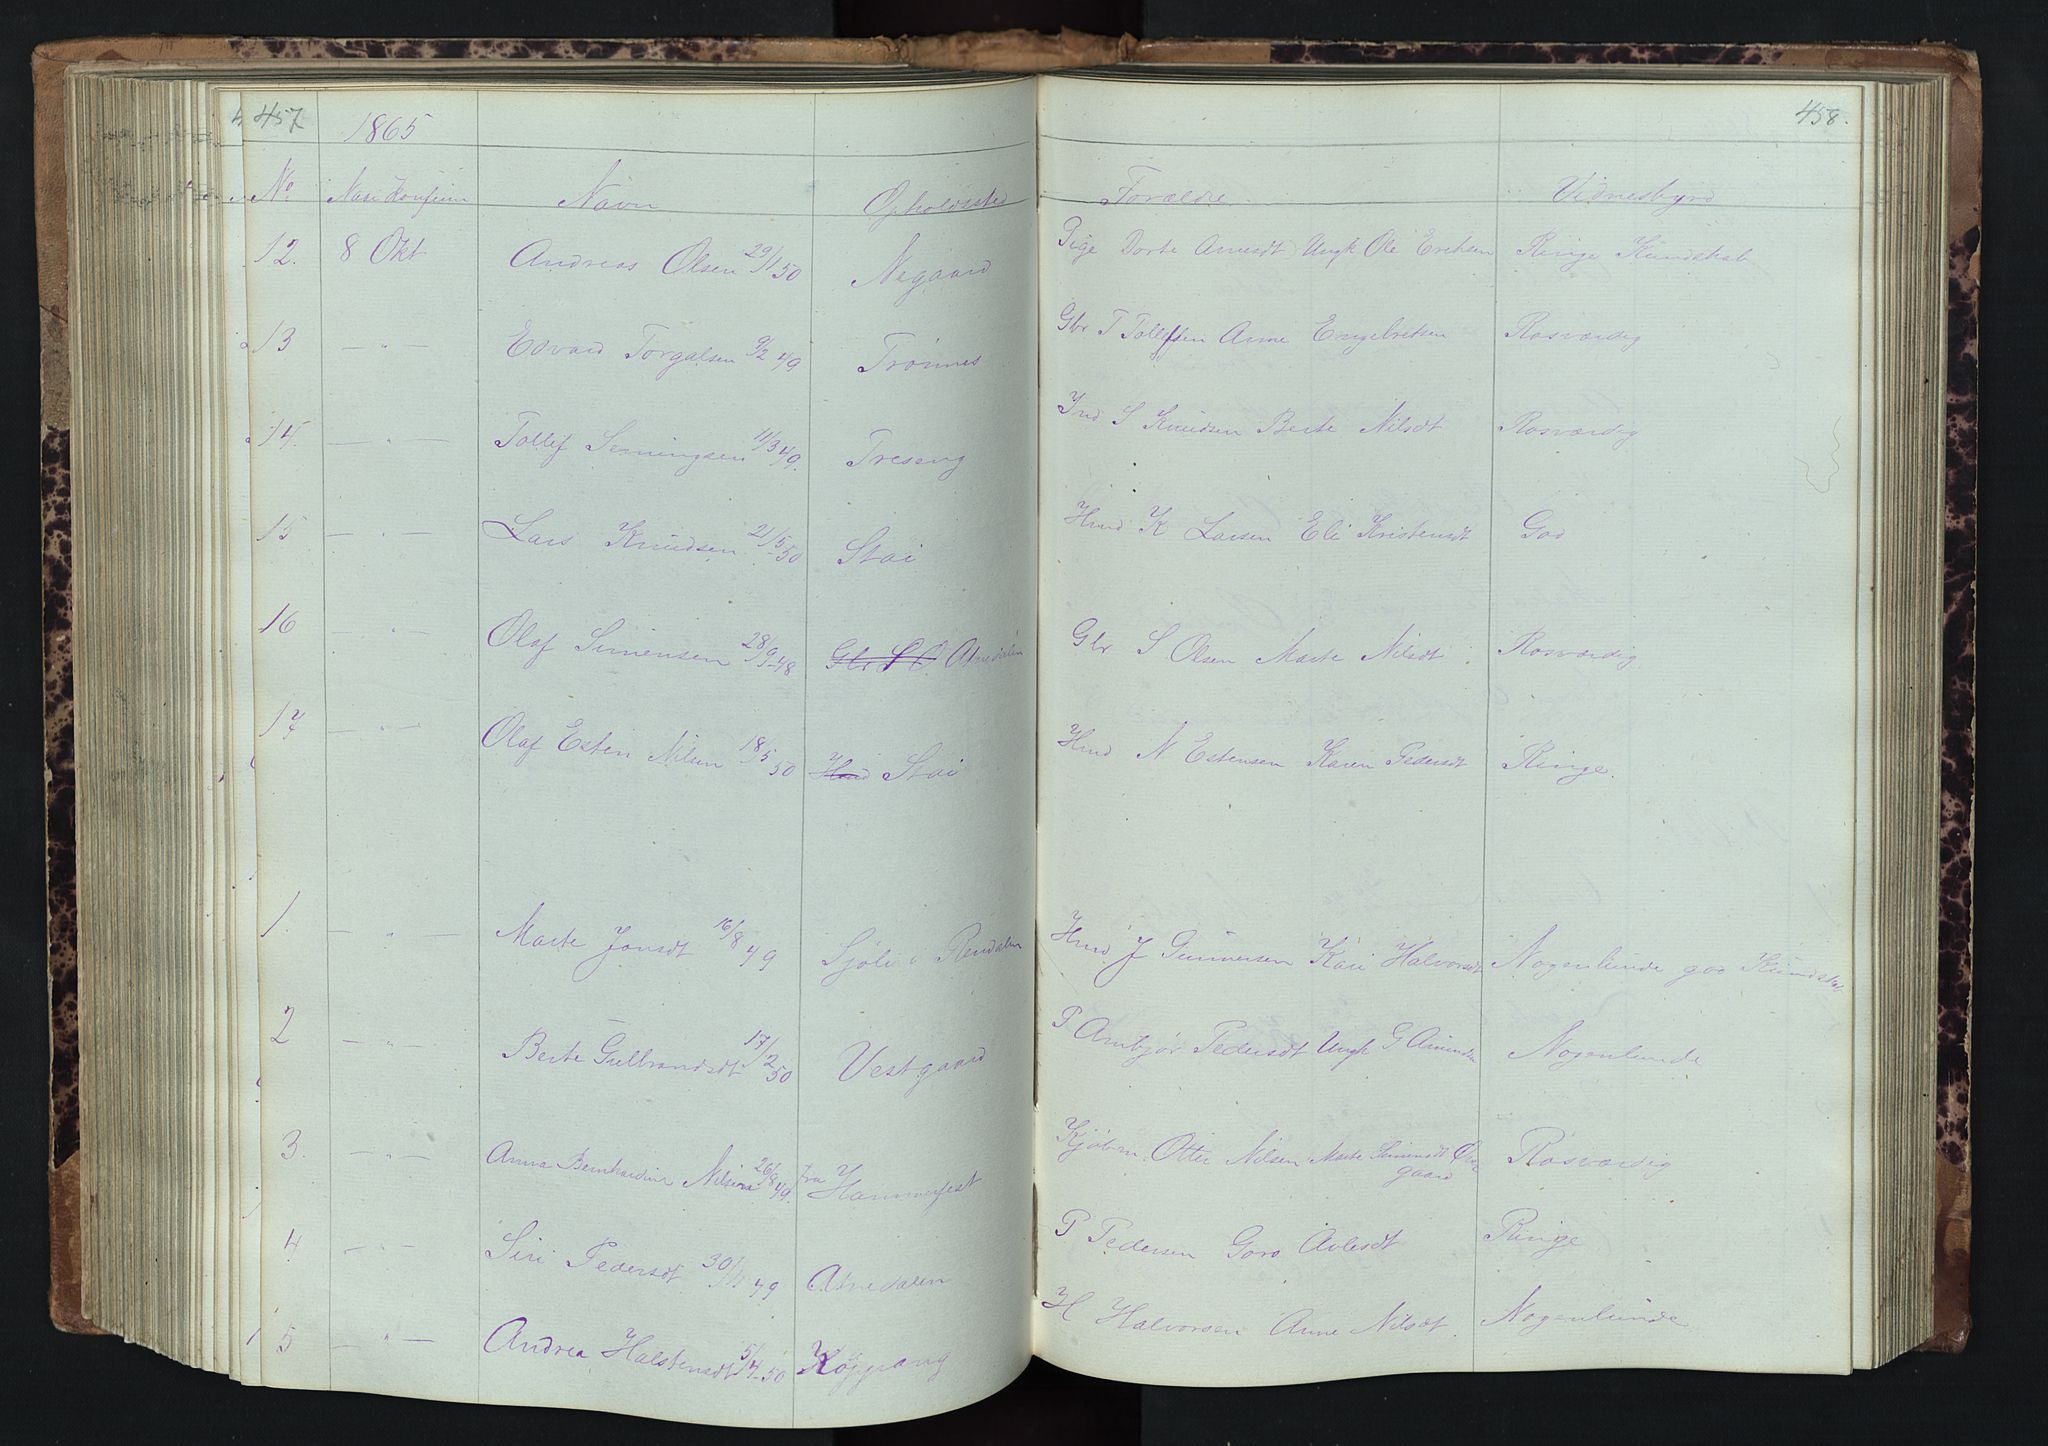 457
1865
458.
No Navn Opholdssted Forældre Vidnesbyrd
12. 8 Okt Andreas Olsen 29/1 50 Negaard Pige Dorte Amusdt Ungk Ole Eriksen Ringe Kundskab
13 — " — Edvard Torgalsen 9/2 49 Trønnes Gbr T Tollefsen Anne Engebretsen Rosværdig
14. — " — Tollef Semingsen 11/3 49. Treseng Ind S Knudsen Berte Nilsdt Rosværdig
15 — " — Lars Knudsen 21/5 50 Stai Hmd K Larsen Eli Kristensdt God
16 — " — Olaf Simensen 28/9-48 Atnedalen Gbr S Olsen Marte Nilsdt Rosværdig
17 — " — Olaf Esten Nilsen 18/5 50 Hmd Stai Hmd N Estensen Karen Pedersdt Ringe.
1. — " — Marte Jonsdt 16/8 49 Sjøli i Rendalen Hmd J Gunnersen Kari Halvorsdt Nogenlunde god Kundskab
2 — " — Berte Gulbrandsdt 17/2 50 Vestgaard P Ambjør Pedersdt Ungk G Amundsen Nogenlunde
3. — " — Anna Bernhardine Nilsen 26/8 49. fra Hammerfest Kjøbm. Otter Nilsen Marte Simensdt Øvre
gaard Rosværdig
4 — " — Siri Pedersdt 30/ 49 Atnedalen P Pedersen Goro Avlesdt Ringe
5 — " — Andrea Halstensdt 5/4-50 Køpprang H Halvorsen Anne Nilsdt. Nogenlunde